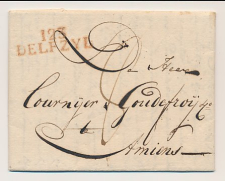 123
DELFZYL
De Heer
Cournyer & Goudefroij &c
te
Amiens